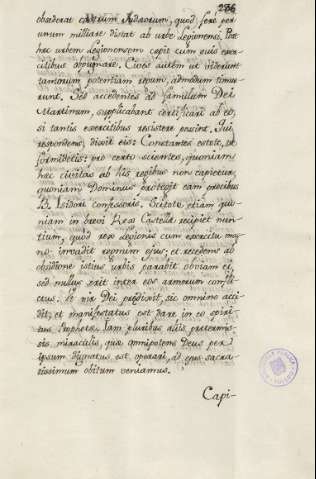 236
obsiderat castrum Judaeorum, quod fere per
unum milliare distat ab urbe Legionensi. Post
hec urbem Legionensem cepit cum suis exer-
citibus oppugnare. Cives autem ut viderunt
tantorum potentiam regum, admodum timue-
runt. Sed accedentes ad famulum Dei
Martinum, supplicabant certificari ab eo,
si tantis exercitibus resistere possint. Qui
respondens, dixit eis: Constantes estote, ne
formidetis; pro certo scientes, quoniam
hec civitas ab his regibus non capietur,
quoniam Dominus protegit eam precibus
B. Isidori confessoris. Scitote etiam quo-
niam in brevi Rex Castellae recipiet nun-
tium, quod rex Legionis cum exercitu mag-
no invadit regnum ejus; et recedens ab
obsidione istius urbis parabit obviam ei,
sed nullus erit inter eos armorum conflic-
tus. Ut vir Dei predixit, sic omnino acci-
dit; et manifestatus est dare in eo spiri-
tus Prophetiae. Jam pluribus aliis pretermis-
sis miraculis, quae omnipotens Deus per
ipsum dignatus est operari, ad ejus sacra-
tissimum obitum veniamus.
Capi-